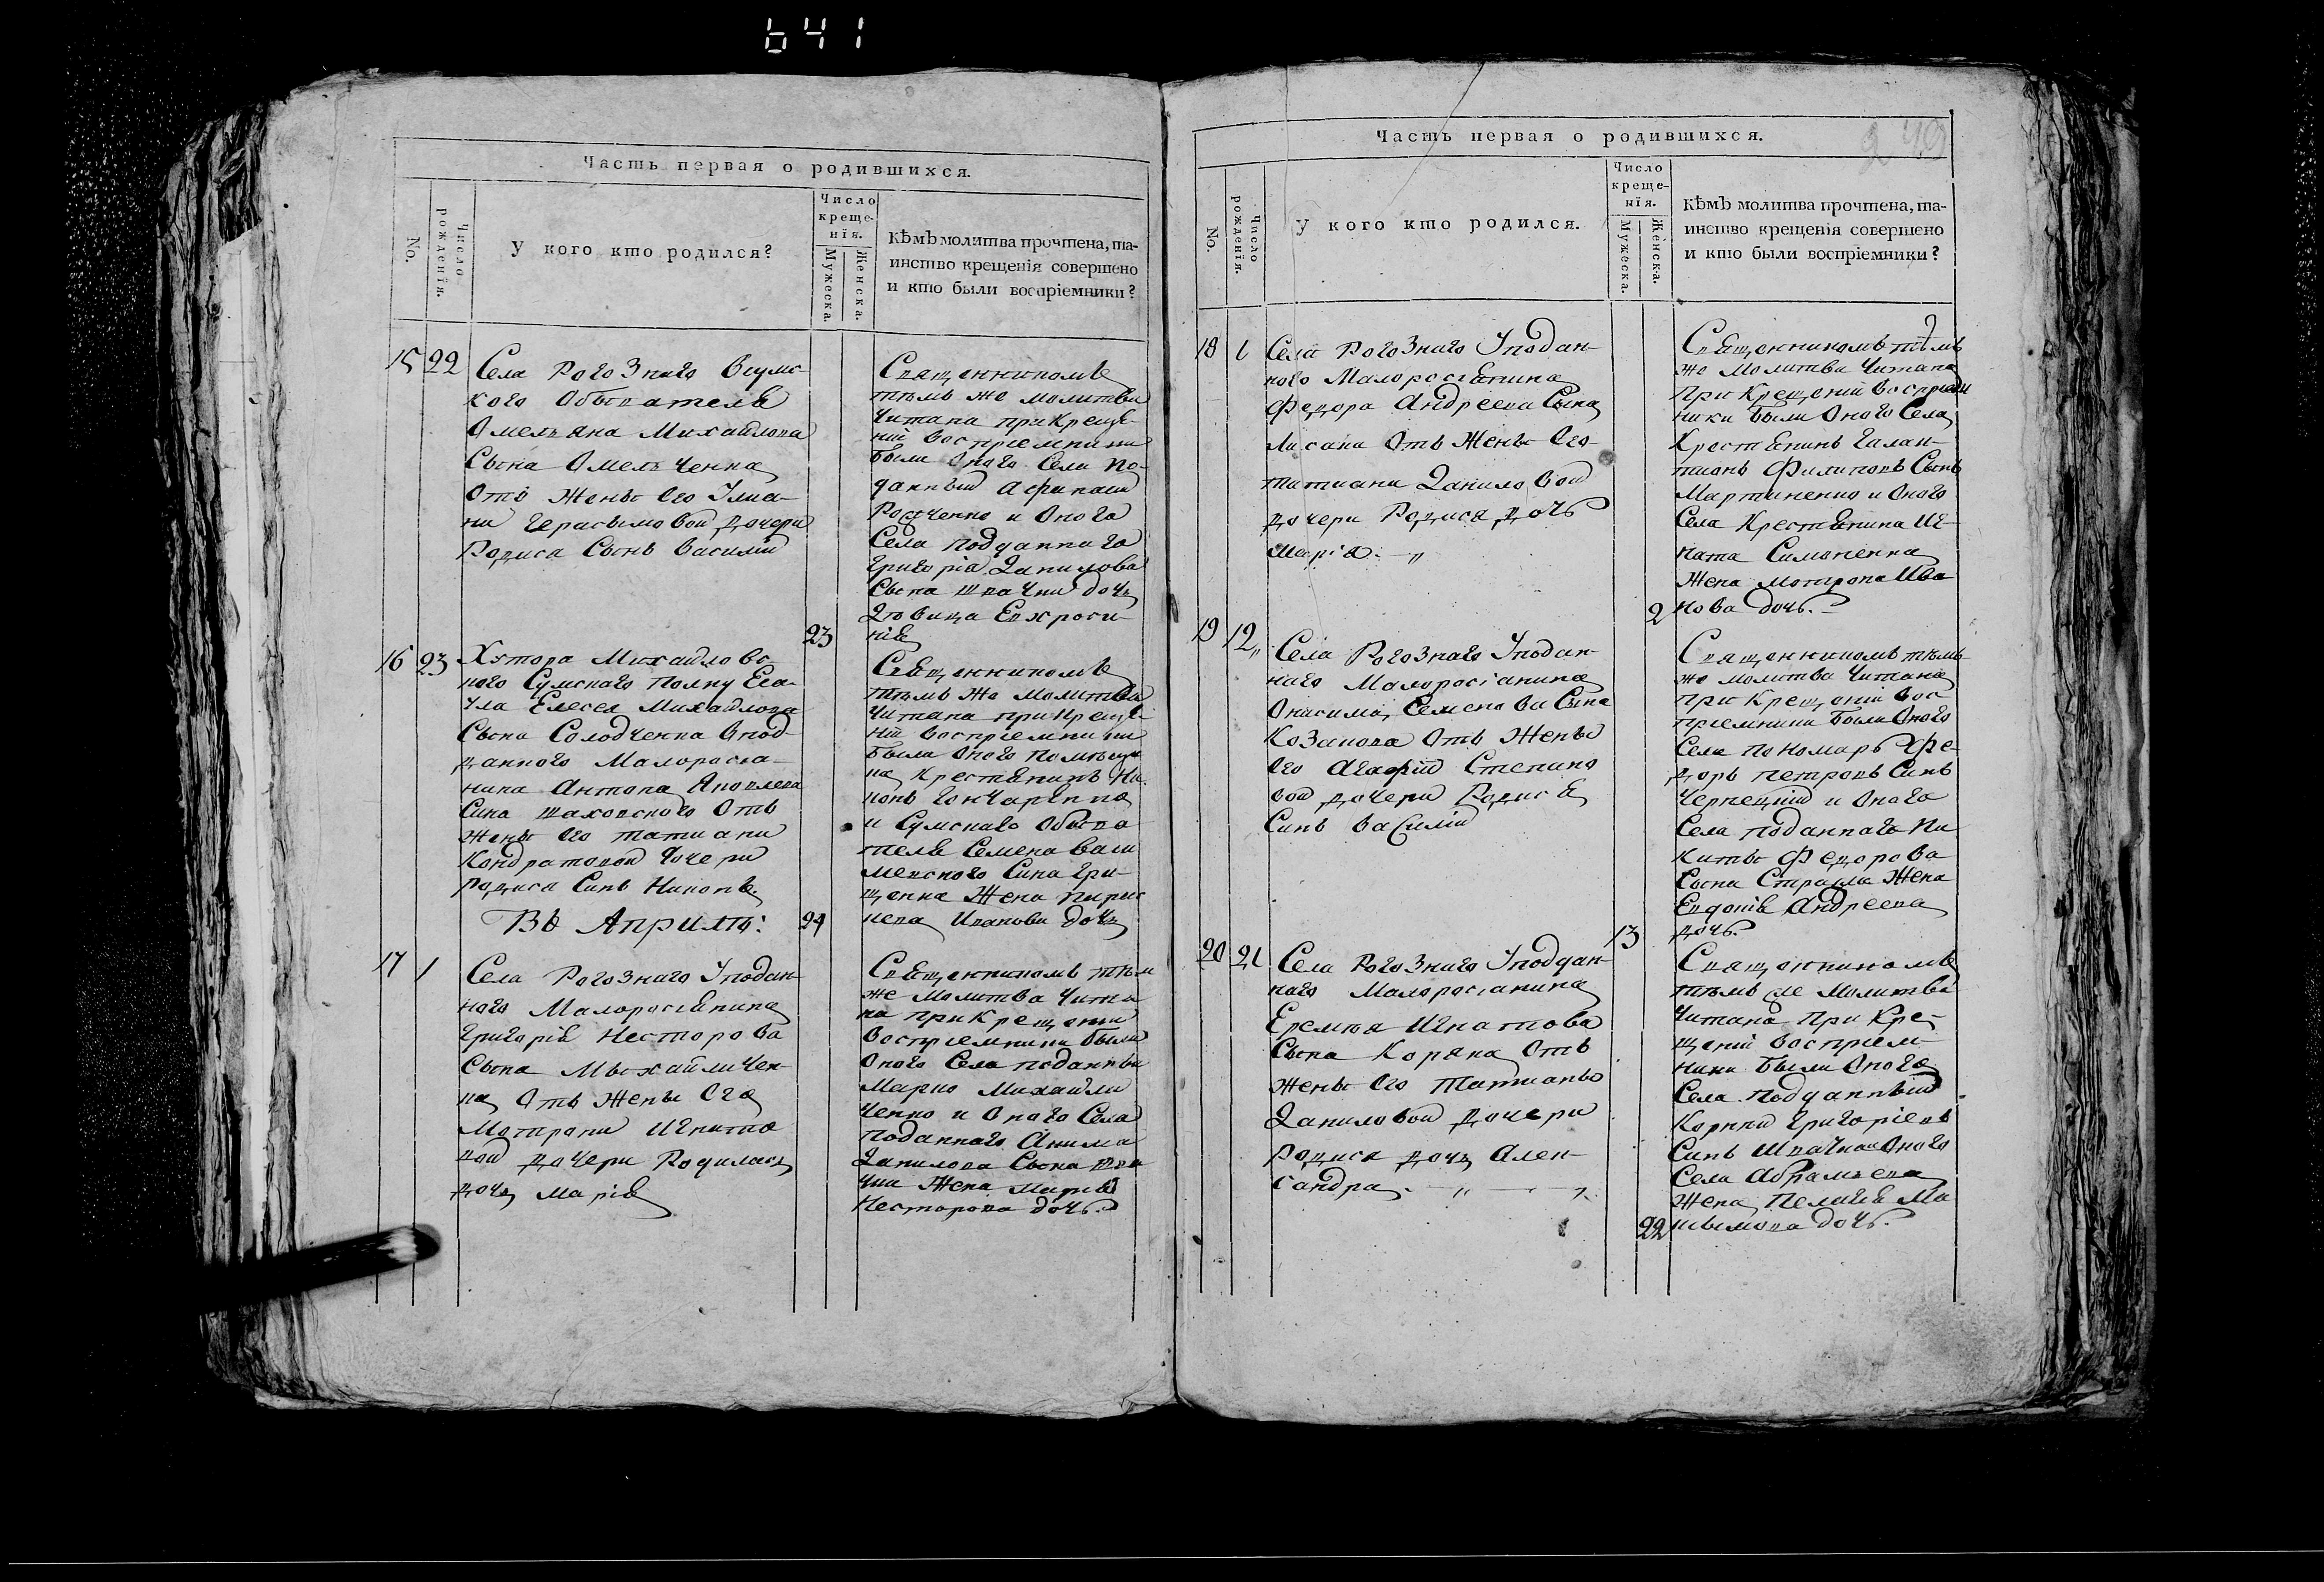 641
Часть первая о родившихся.
No.
Число рожденія.
У кого кто родился?
Число
креще-
нія.
Мужеска.
Женска.
Кѣмъ молитва прочтена, та-
инство крещенія совершено
и кто были воспріемники?
15 22
Села Рогознаго
кого Обывателя
Омеляна Михайлова
Сына Омельченка
Отъ Жены Его Улиа-
ни Герасымовой Дочери
Родися Сынъ Василій
23
Священникомъ
тѣмъ же молитва
Читана при Креще-
ніи Воспріемники
были Оного Села По-
данный
и Оного
Села Подданнаго
Григорія Данилова
Сына Шпачки дочь
Дѣвица Евхроси-
нія
16 23
Хутора Михайловс-
кого Сумскаго Полку Еса-
ула Елесея Михайлова
Сына Солодченка Упод-
данного Малоросіа-
нина Антона Яковлева
Сина Шаховского Отъ
Жены Его Татиани
Кондратовой Дочери
родися Синъ Никонъ.
24
Священникомъ
тѣмъ же Молитва
Читана при Креще-
ніи Воспріемники
были Оного Помѣщи
ка Крестянинъ Ни-
конъ Гончаренко
и Сумскаго Обыва-
теля Семена Васи
левского Сина Гри-
щенка Жена
Иванова дочь
Въ Априлѣ:
17 1
Села Рогознаго Уподан-
ного Малоросіянина
Григорія Несторова
Сына Мыхайличен-
ка Отъ Жены Его
Мотрони Игнато
вой дочери Родилась
дочь Марія
Священникомъ тѣм
же Молитва Чита
на при Крещении
Воспріемники были
Оного Села поданный
Марко Михайли
ченко и Оного Села
поданнаго Акима
Данилова Сына Шпа
чки Жена Марія
Несторова дочь.
Часть первая о родившихся.
249
No.
Число рожденія.
У кого кто родился.
Число
креще-
нія.
Мужеска.
Женска.
Кѣмъ молитва прочтена, та-
инство крещенія совершено
и кто были воспріемники?
18 1
Села Рогознаго Уподан-
ного Малоросіянина
Федора Андреева Сына
Лисака Отъ Жены Его
Татиани Даниловой
дочери Родися дочь
Марія.
2
Священникомъ тѣмъ
же Молитва Читана
При Крещеніи Воспріем
ники были Оного Села
Крестянинъ Галак-
тионъ Филиповъ Сынъ
Мартиненко и Оного
Села Крестянина Иг-
ната Симоненка
Жена Мотрона Ива
нова дочь.
19 12
Села Рогознаго Уподан-
наго Малоросіанина
Онисима Семенова Сына
Козакова Отъ Жены
Его Агафіи Степано
вой дочери Родися
Синъ Василій
13
Священникомъ тѣмъ
же молитва Читана
при Крещеніи Вос
пріемники были Оного
Села Пономарь Фе-
доръ Петровъ Синъ
Чернецкій и Оного
Села поданнаго Ни
киты Федорова
Сына Жена
Евдокія Андреева
дочь.
20 21
Села Рогознаго Уподдан-
ного Малоросіанина
Еремія Игнатова
Сына Коряка Отъ
Жены Его Татианы
Даниловой Дочери
Родися дочь Алек-
сандра
22
Священникомъ
тѣмъ же Молитва
Читана При Кре-
щеніи Воспріем-
ники были Оного
Села Подданный
Корній Григоріевъ
Синъ Шпачка и Оного
Села
Жена Пелагія Ма
ксымова дочь.